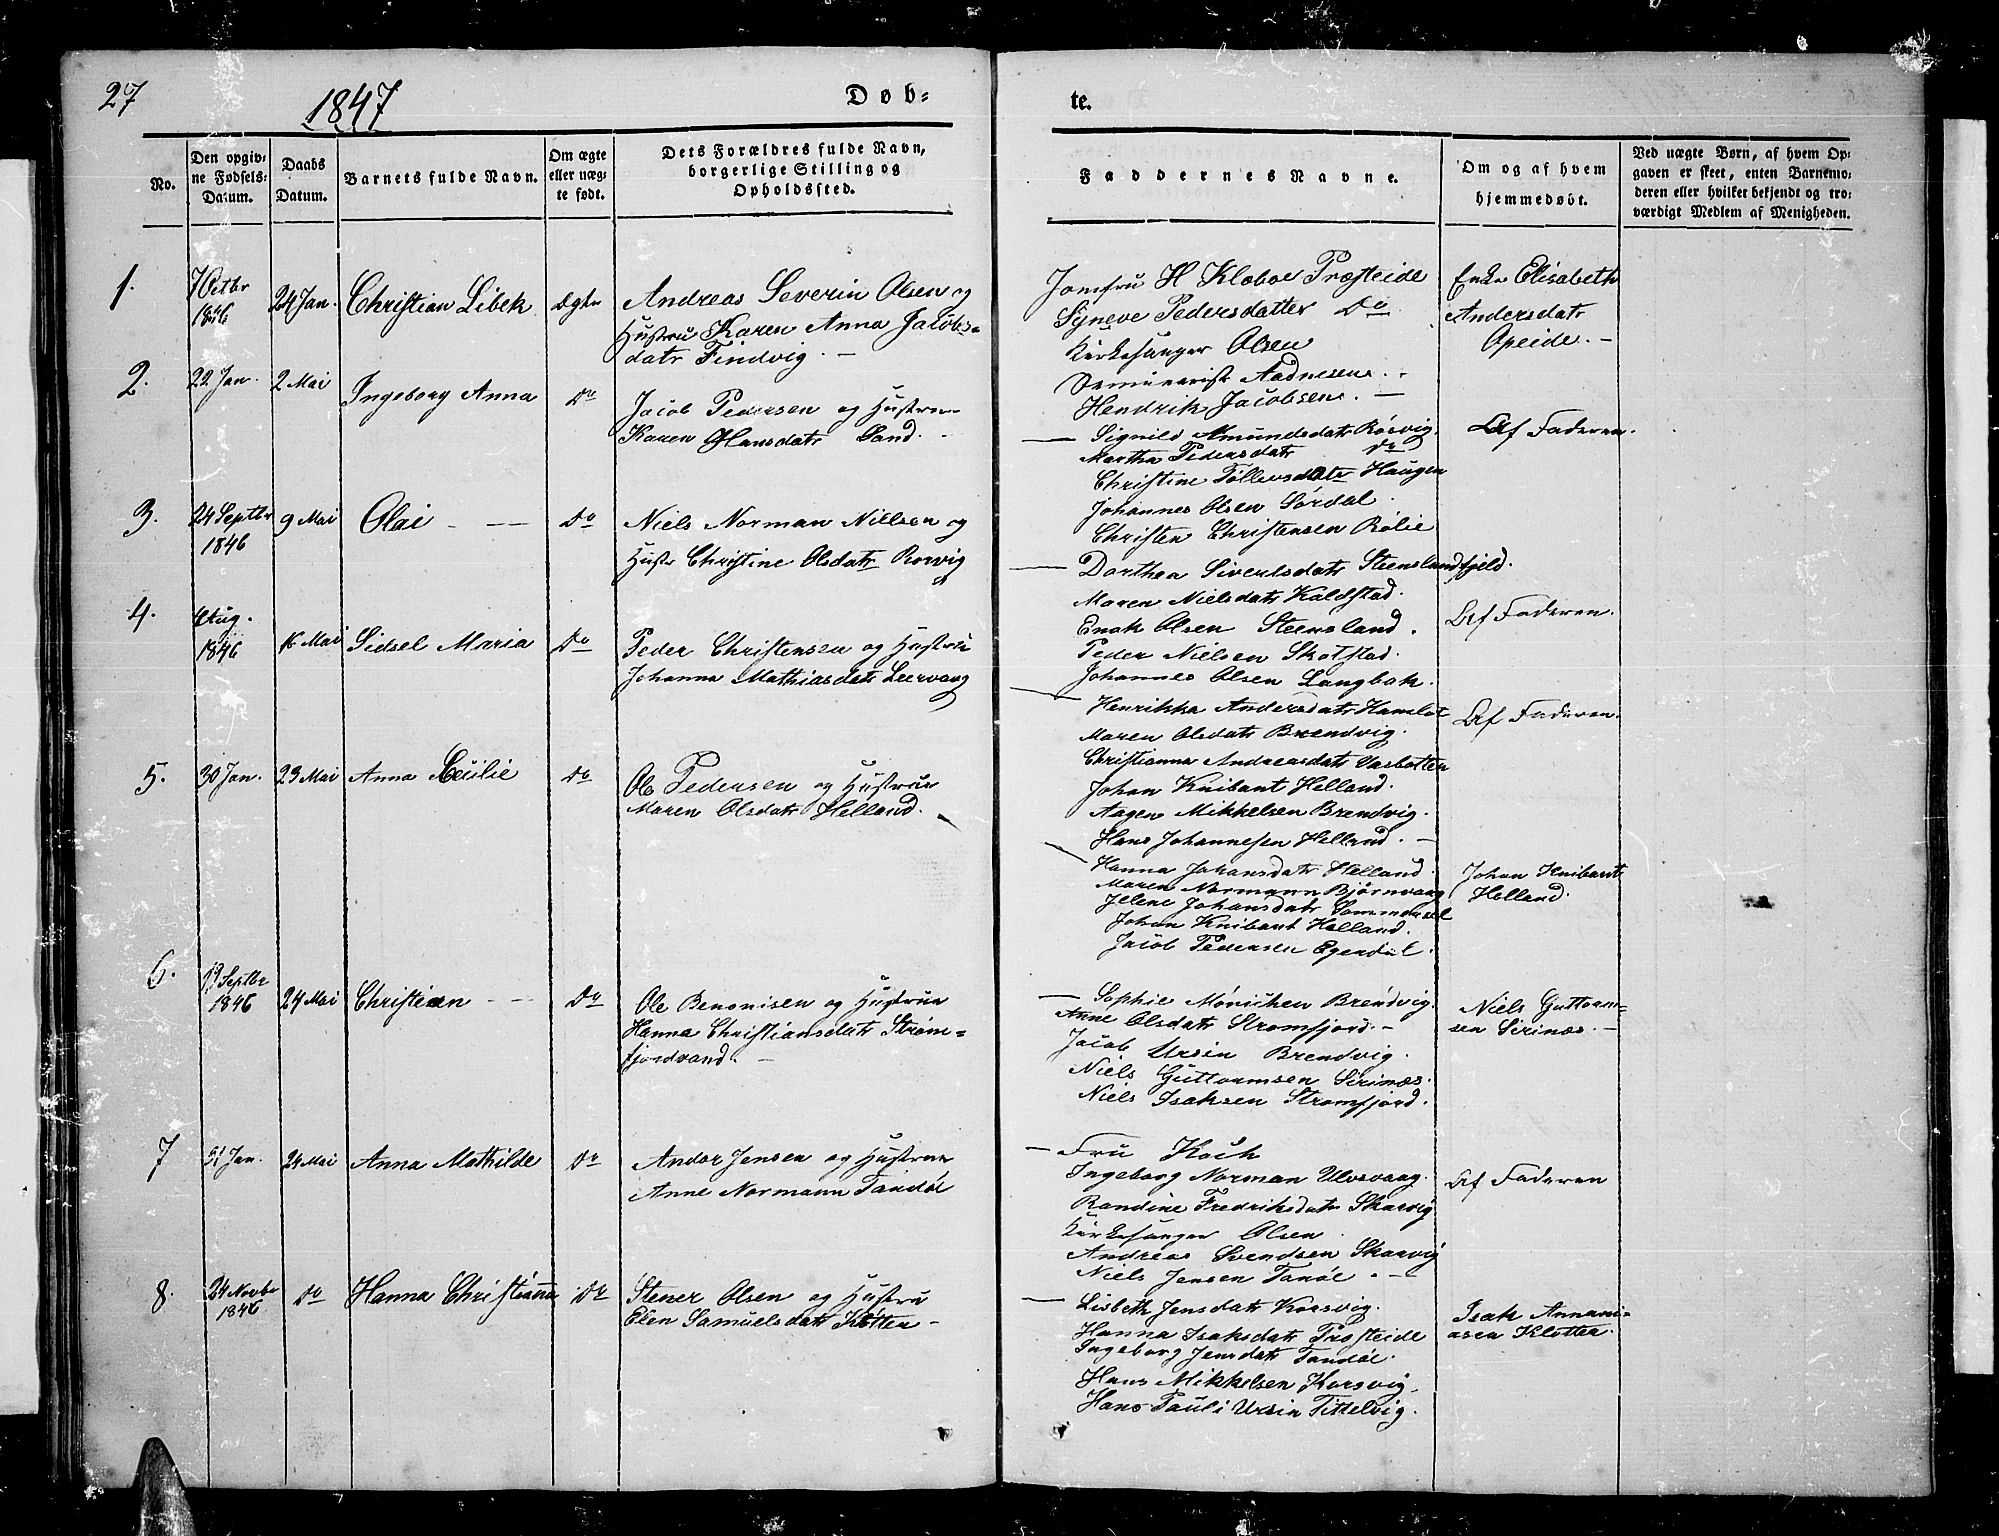 27
1847
Døb-
te.
No.
Den opgiv-
ne Fødsels-
Datum.
Daabs
Datum.
Barnets fulde Navn.
Om ægte
eller uæg-
te født.
Dets Forældres fulde Navn,
borgerlige Stilling og
Opholdssted.
Faddernes Navne.
Om og af hvem
hjemmedøbt.
Ved uægte Børn, af hvem Op-
gaven er skeet, enten Barnemo-
deren eller hvilket bekjendt og tro-
værdigt Medlem af Menigheden.
1.
7 Octbr
1846
24 Jan.
Christian Libek
Ægte
Andreas Severin Olsen og
Hustru Karen Anna Jakobs-
datr Findvig. —
Jomfru H Klæboe Præsteide
Syneve Pedersdatter Do
Kirkesanger Olsen
Seminarist Aadnesen. -
Hendrik Jacobsen. —
Enke Elisabeth
Andersdatr
Opeide. —
2.
22 Jan.
2 Mai
Ingeborg Anna
Do
Jacob Pedersen og Hustru
Karen Hansdatr Sand. -
— Signild Amundsdatr Rørvig
Martha Pedersdatr Do
Christine Tollevsdatr Haugen
Johannes Olsen Sørdal.
Christen Christensen Rølie
Af Faderen.
3.
24 Septbr
1846
9 Mai
Olai - — —
Do
Niels Norman Nielsen og
Hustr Christine Olsdatr Rorvig
— Dorthea Sivertsdatr Steenslandfjeld.
Maren Nielsdatr Kaldstad.
Enok Olsen Steensland.
Peder Nielsen Skotstad.
Johannes Olsen Langbak.
Af Faderen.
4.
Aug.
1846
16 Mai
Sidsel Maria
Do
Peder Christensen og Hustru
Johanna Mathiasdatr Leervaag
— Henrikka Andersdatr Hamlot
Maren Olsdatr Brendvig.
Christianna Andreasdatr Vasbotten
Johan Knibant Helland.
Aagen Mikkelsen Brendvig.
Hans Johannessen Helland. —
Af Faderen.
5.
30 Jan.
23 Mai
Anna Cecilie
Do
Ole Pedersen og Hustrue
Maren Olsdatr Helland.
— Hanna Johansdatr Helland
Maren Normann Bjørnvaag
Jelene Johansdatr Sommersel
Johan Knibant Helland.
Jacob Pedersen Egendal.
Johan Knibant
Helland.
6.
19 Septbr
1846
24 Mai
Christian - —
Do
Ole Benonisen og Hustrue
Hanna Christiansdatr Strøm-
fjordvand. —
— Sophie Mønichen Brendvig.
Anne Olsdatr Stromfjord. -
Jacob Ursin Brendvig.
Niels Guttormsen Sirinæs.
Niels Isaksen Stromfjord.
Niels Guttorm-
sen Sirinæs. —
7
31 Jan.
24 Mai
Anna Mathilde
Do
Andor Jensen og Hustrue
Anne Normann Tandøl
— Fru Koch
Ingeborg Norman Ulvsvaag.
Randine Fredriksdatr Skarvig
Kirkesanger Olsen.
Andreas Svendsen Skarvig
Niels Jensen Tanøl. —
Af Faderen
8.
24 Novbr
1846
Do
Hanna Christianna
Do
Stener Olsen og Hustru
Elen Samuelsdatr Kløtten -
— Lisbeth Jensdatr Korsvig.
Hanna Isaksdatr Prosteide
Ingeborg Jensdatr Tandøl.
Hans Mikkelsen Korsvig.
Hans Pauli Ursin Tittelvig.
Isak Annani-
asen Kløtten.